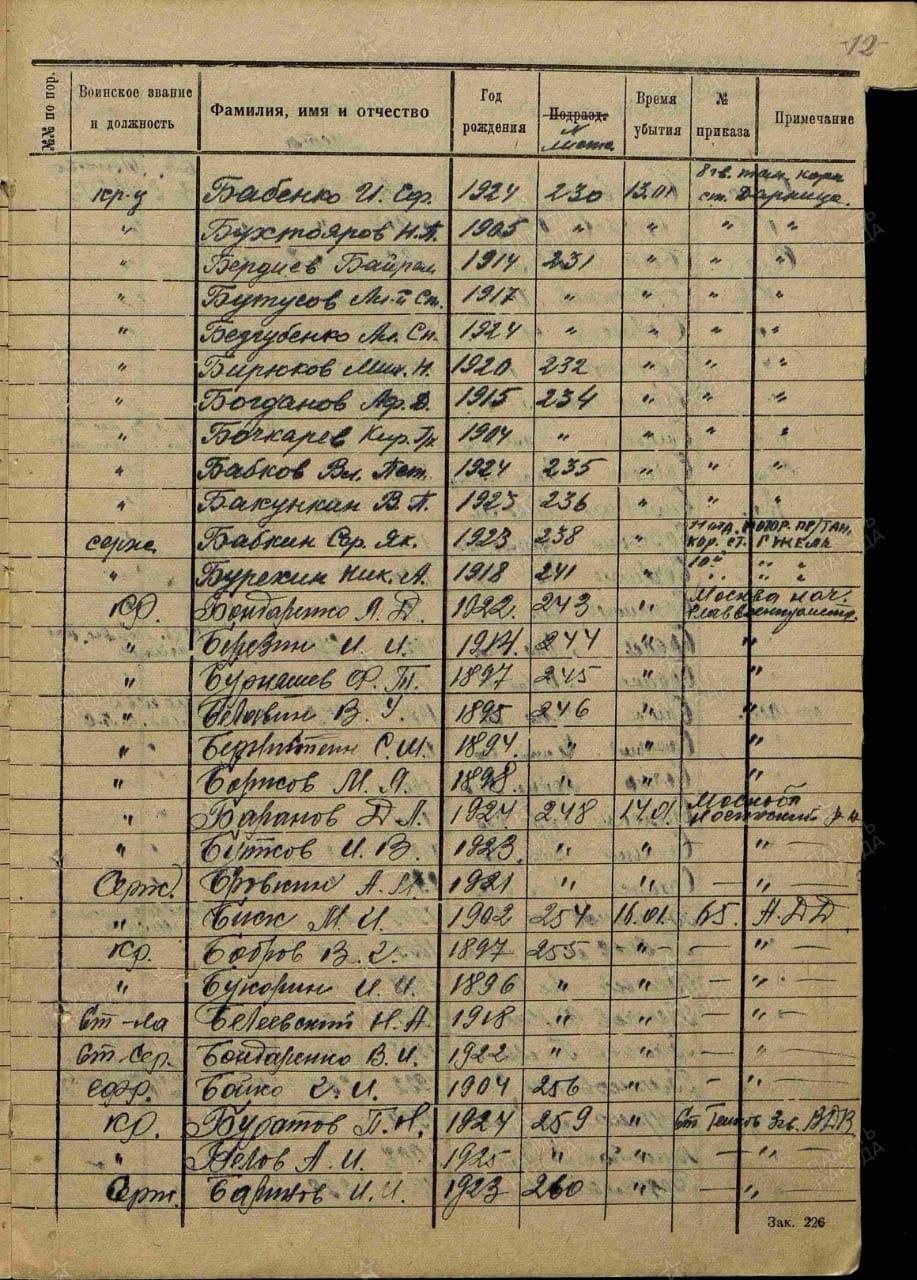 12
№№ по пор. Воинское звание и должность Фамилия, имя и отчество Год рождения Подразд. № листа Время убытия № приказа Примечание
8 гв. тан. корп
кр-ц Бабенко И. Еф. 1924 230 13.01 ст. Дарница.
" Бухтояров Н.П. 1905 " " " "
" Бердиев Байрам 1914 231 " " "
" Бутусов Ал-й Ст. 1917 " " " "
" Безгубенко Ал. Сп. 1924 " " " "
" Бирюков Мих. Н. 1920 232 " " "
" Богданов Аф. Д. 1915 234 " " "
" Бочкарев Кир. Гр 1904 " " " "
" Бабков Вл. Пет. 1924 235 " " "
" Бакункин В. П. 1923 236 " " "
ОТД. МОТОР. ПР/ТАН.
серж. Бабкин Сер. Як. 1923 238 " КОР. СТ. ГЖЕЛЬ
" Бурехин Ник. А. 1918 241 " " " "
Москва нач.
Кр. Бондаренко А. Д. 1922. 243 "
" Березин И. И. 1914. 244 " "
" Бурнашев Ф. Т. 1897 245 " "
" Белавин В. У. 1895 246 " "
" С. Ш. 1894. " " "
" Борисов М. А. 1898. " " "
" Баранов Д. А. 1924 248 14.01.
" И. В. 1923. " " "
Серж. Бровкин А. И. 1921 " " — " —
" Биск М. И. 1902 254 16.01. 65. А.ДД
Кр. Бобров В. 1897 255 — " — — " —
" Букорин И. И. 1896 " " — " —
Ст-на Белеевский Н. А. 1918 " " — " —
Ст. Сер. Бондаренко В. И. 1922 " " — "
ефр. Бойко И. 1904 256 " — " —
Кр. Буратов П. Н. 1924 259 " Ст 3 гв. ВДВ
" Белов А. И. 1925 " " — " —
Серж. И. И. 1923 260 " — " —
Зак. 226